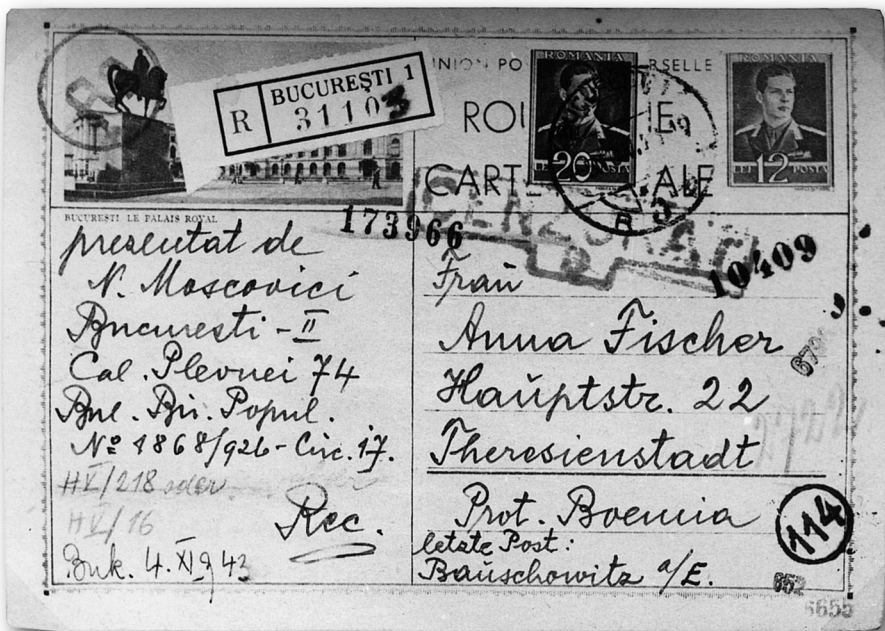 R BUCUREȘTI 1
31103
ROMANIA
20
LEI POSTA
ROMANIA
LEI 12 POSTA
BUCUREȘTI LE PALAIS ROYAL
173966
CENZURAT
10409
prezentat de
N. Moscovici
Bucuresti - II
Cal. Plevnei 74
Bul. Bir. Popul.
Nº 1868/926 - Circ. 17.
HV/218 oder
HV/16
Rec.
Buk. 4. XI 943
Frau
Anna Fischer
Hauptstr. 22
Theresienstadt
Prot. Boemia
letzte Post:
Bauschowitz a/E.
114
652
6655